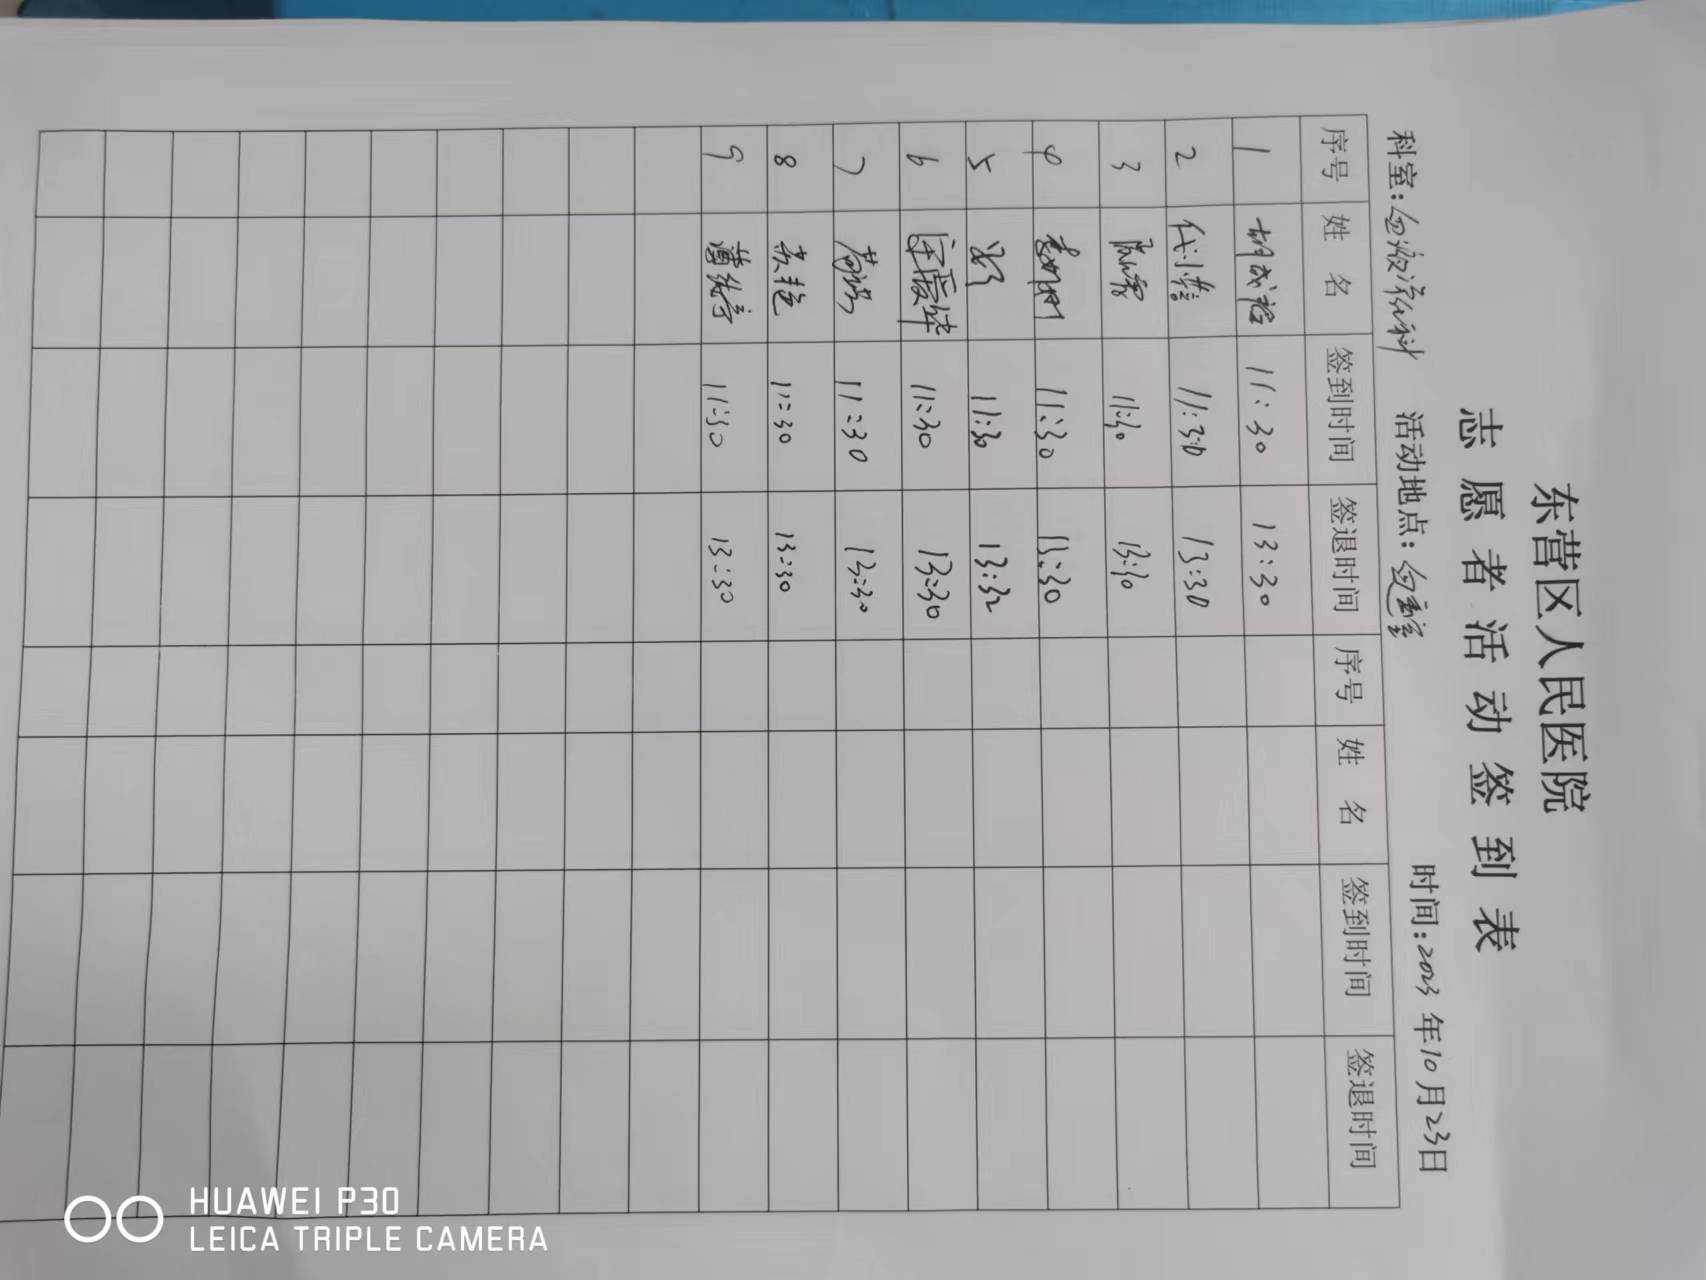 东营区人民医院
志愿者活动签到表
科室: 血液净化科 活动地点: 血透室 时间:2023年10月23日
序号 姓名 签到时间 签退时间 序号 姓名 签到时间 签退时间
1 11:30 13:30
2 代小 11:30 13:30
3 11:30 13:30
4 11:30 13:30
5 11:30 13:32
6 11:30 13:30
7 11:30 13:30
8 艳 11:30 13:30
9 11:30 13:30
HUAWEI P30
LEICA TRIPLE CAMERA